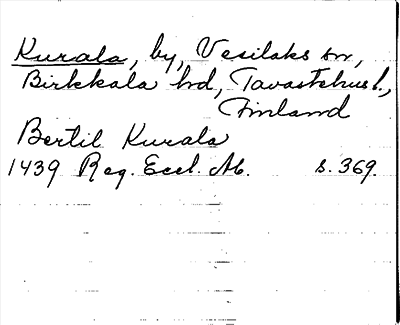 Kurala, by, Vesilaks sn,
Birkkala hd, Tavastehus l.,
Finland
Bertil Kurala
1439 Reg. Eccl. Ab. s. 369.